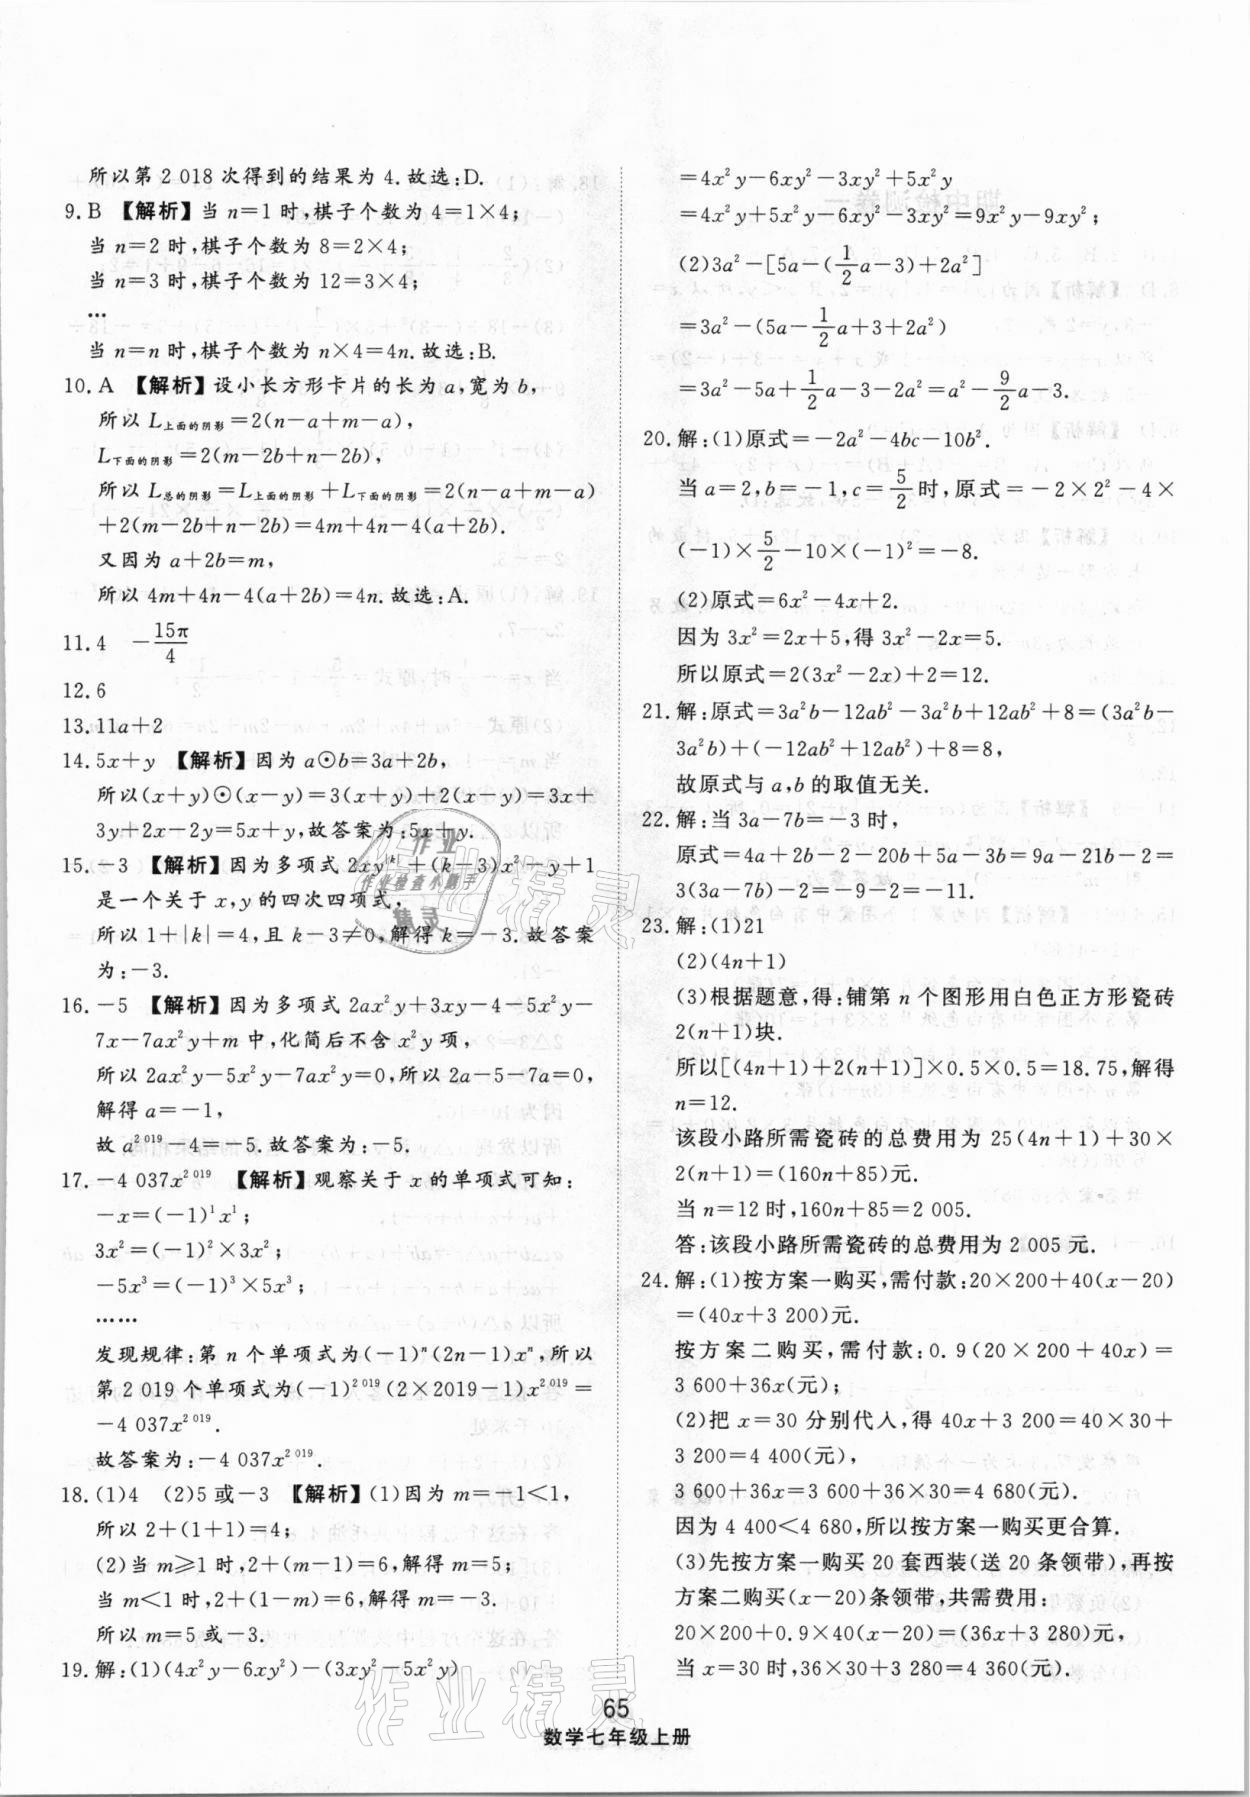 所以第 2 018 次得到的结果为 4.故选:D.
9.B 【解析】当 n=1 时,棋子个数为 4=1×4;
当 n=2 时,棋子个数为 8=2×4;
当 n=3 时,棋子个数为 12=3×4;
…
当 n=n 时,棋子个数为 n×4=4n.故选:B.
10.A 【解析】设小长方形卡片的长为 a,宽为 b,
所以 L上面的阴影=2(n-a+m-a),
L下面的阴影=2(m-2b+n-2b),
所以 L总的阴影=L上面的阴影+L下面的阴影=2(n-a+m-a)
+2(m-2b+n-2b)=4m+4n-4(a+2b).
又因为 a+2b=m,
所以 4m+4n-4(a+2b)=4n.故选:A.
11.4 -15π/4
12.6
13.11a+2
14.5x+y 【解析】因为 a⊙b=3a+2b,
所以(x+y)⊙(x-y)=3(x+y)+2(x-y)=3x+
3y+2x-2y=5x+y,故答案为:5x+y.
15.-3 【解析】因为多项式 2xy^|k|+(k-3)x²-y+1
是一个关于 x,y 的四次四项式,
所以 1+|k|=4,且 k-3≠0,解得 k=-3.故答案
为:-3.
16.-5 【解析】因为多项式 2ax²y+3xy-4-5x²y-
7x-7ax²y+m 中,化简后不含 x²y 项,
所以 2ax²y-5x²y-7ax²y=0,所以 2a-5-7a=0,
解得 a=-1,
故 a²⁰¹⁹-4=-5.故答案为:-5.
17.-4 037x²⁰¹⁹ 【解析】观察关于 x 的单项式可知:
-x=(-1)¹x¹;
3x²=(-1)²×3x²;
-5x³=(-1)³×5x³;
……
发现规律:第 n 个单项式为(-1)ⁿ(2n-1)xⁿ,所以
第 2 019 个单项式为(-1)²⁰¹⁹(2×2019-1)x²⁰¹⁹=
-4 037x²⁰¹⁹.
故答案为:-4 037x²⁰¹⁹.
18.(1)4 (2)5 或-3 【解析】(1)因为 m=-1<1,
所以 2+(1+1)=4;
(2)当 m≥1 时,2+(m-1)=6,解得 m=5;
当 m<1 时,2+(1-m)=6,解得 m=-3.
所以 m=5 或-3.
19.解:(1)(4x²y-6xy²)-(3xy²-5x²y)
=4x²y-6xy²-3xy²+5x²y
=4x²y+5x²y-6xy²-3xy²=9x²y-9xy²;
(2)3a²-[5a-(1/2a-3)+2a²]
=3a²-(5a-1/2a+3+2a²)
=3a²-5a+1/2a-3-2a²=a²-9/2a-3.
20.解:(1)原式=-2a²-4bc-10b².
当 a=2,b=-1,c=5/2时,原式=-2×2²-4×
(-1)×5/2-10×(-1)²=-8.
(2)原式=6x²-4x+2.
因为 3x²=2x+5,得 3x²-2x=5.
所以原式=2(3x²-2x)+2=12.
21.解:原式=3a²b-12ab²-3a²b+12ab²+8=(3a²b-
3a²b)+(-12ab²+12ab²)+8=8,
故原式与 a,b 的取值无关.
22.解:当 3a-7b=-3 时,
原式=4a+2b-2-20b+5a-3b=9a-21b-2=
3(3a-7b)-2=-9-2=-11.
23.解:(1)21
(2)(4n+1)
(3)根据题意,得:铺第 n 个图形用白色正方形瓷砖
2(n+1)块.
所以[(4n+1)+2(n+1)]×0.5×0.5=18.75,解得
n=12.
该段小路所需瓷砖的总费用为 25(4n+1)+30×
2(n+1)=(160n+85)元.
当 n=12 时,160n+85=2 005.
答:该段小路所需瓷砖的总费用为 2 005 元.
24.解:(1)按方案一购买,需付款:20×200+40(x-20)
=(40x+3 200)元.
按方案二购买,需付款:0.9(20×200+40x)=
3 600+36x(元);
(2)把 x=30 分别代人,得 40x+3 200=40×30+
3 200=4 400(元),
3 600+36x=3 600+36×30=4 680(元).
因为 4 400<4 680,所以按方案一购买更合算.
(3)先按方案一购买 20 套西装(送 20 条领带),再按
方案二购买(x-20)条领带,共需费用:
20×200+0.9×40(x-20)=(36x+3 280)元,
当 x=30 时,36×30+3 280=4 360(元).
作业
作业检查小助手
精灵
作业精灵
作业精灵
65
数学七年级上册